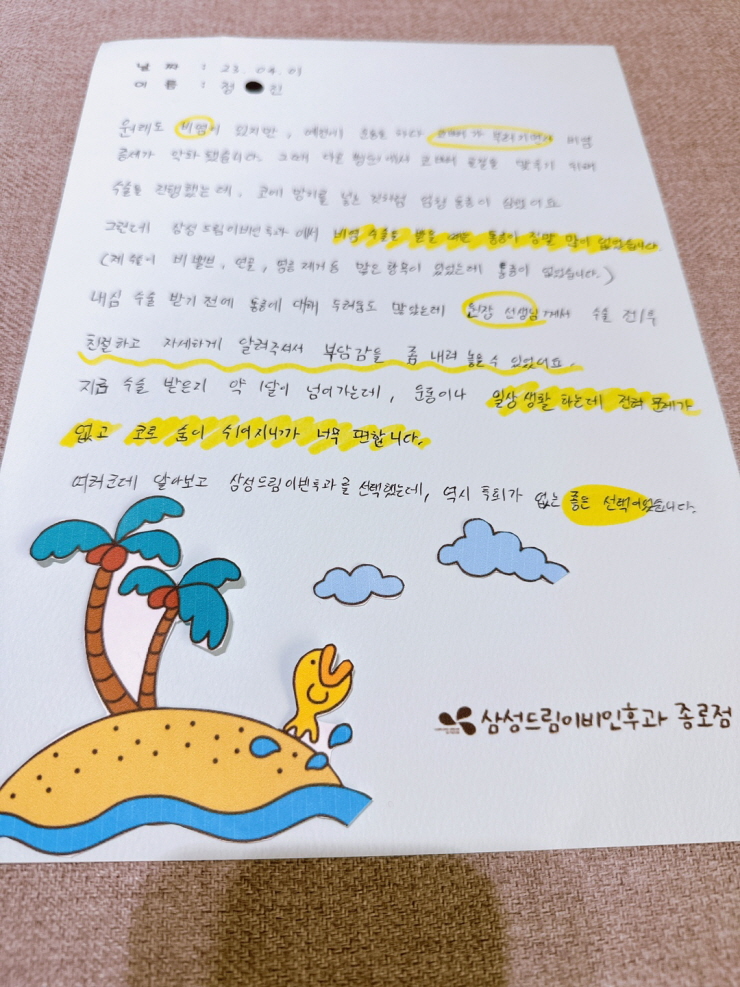 날 짜 : 23. 04. 01
이 름 : 정 ● 진
원래도 비염이 있지만, 예전에 운동을 하다 코뼈가 부러지면서 비염
증세가 악화 됐습니다. 그래서 다른 병원에서 코뼈 골절을 맞추기 위해
수술을 진행했는데, 코에 망치를 넣은 것처럼 엄청 통증이 심했어요
그런데 삼성드림이비인후과에서 비염 수술을 받을 때는 통증이 정말 많이 없었습니다.
(제 원이 비밸브, 연골, 염증 제거 등 많은 항목이 있었는데 통증이 없었습니다.)
내심 수술 받기 전에 통증에 대해 두려움도 많았는데 원장 선생님께서 수술 전/후
친절하고 자세하게 알려주셔서 부담감을 좀 내려 놓을 수 있었어요.
지금 수술 받은지 약 1달이 넘어가는데, 운동이나 일상생활 하는데 전혀 문제가
없고 코로 숨이 쉬어지니까 너무 편합니다.
여러군데 알아보고 삼성드림이빈후과를 선택했는데, 역시 후회가 없는 좋은 선택이었습니다.
삼성드림이비인후과 종로점